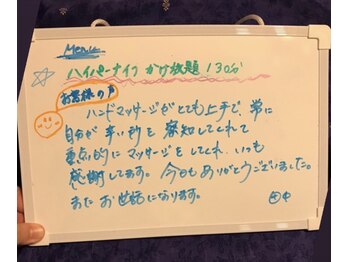 Menu
ハイパーナイフ かけ放題 130分
お客様の声
ハンドマッサージがとても上手で、常に
自分が辛い所を察知してくれて
重点的にマッサージをしてくれ、いつも
感謝してます。今日もありがとうございました。
またお世話になります。 田中